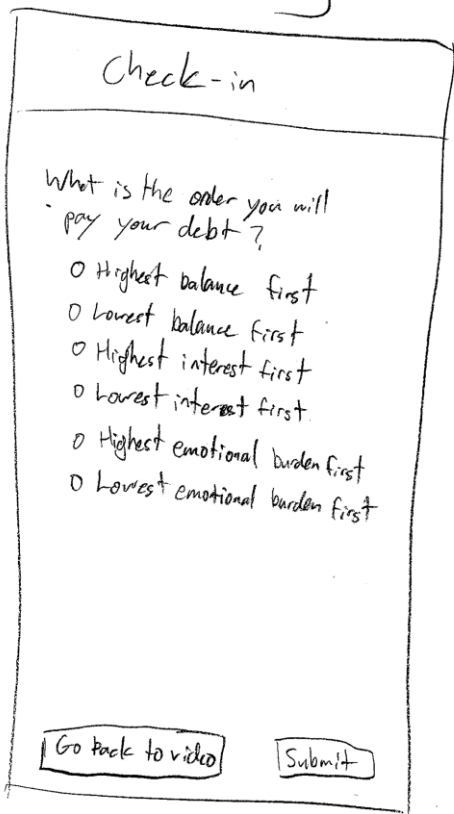 Check-in
What is the order you will
pay your debt?
Highest balance first
Lowest balance first
Highest interest first
Lowest interest first
Highest emotional burden first
Lowest emotional burden first
Go back to video
Submit